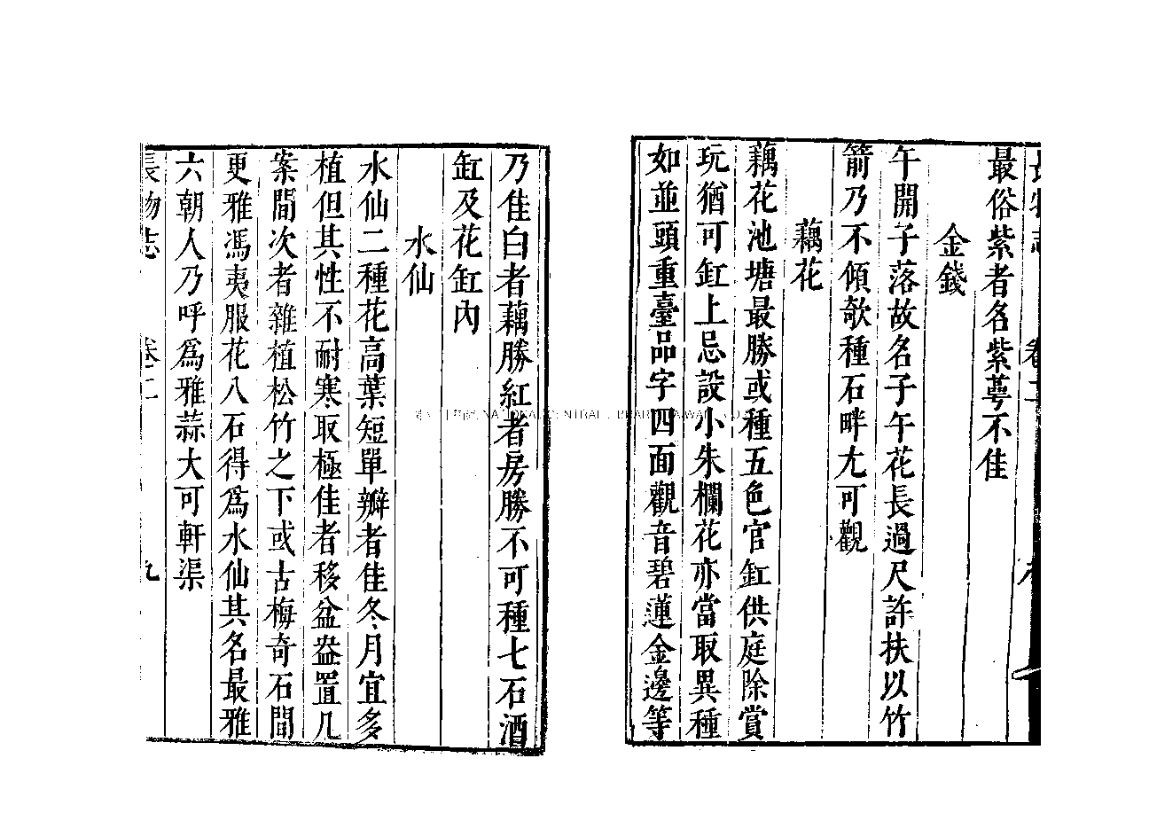 最俗紫者名紫萼不佳
金錢
午開子落故名子午花長過尺許扶以竹
箭乃不傾欹種石畔尤可觀
藕花
藕花池塘最勝或種五色官缸供庭除賞
玩猶可缸上忌設小朱欄花亦當取異種
如並頭重臺品字四面觀音碧蓮金邊等
乃佳白者藕勝紅者房勝不可種七石酒
缸及花缸內
水仙
水仙二種花高葉短單瓣者佳冬月宜多
植但其性不耐寒取極佳者移盆盎置几
案間次者雜植松竹之下或古梅奇石間
更雅馮夷服花八石得為水仙其名最雅
六朝人乃呼為雅蒜大可軒渠
長物志 卷二 九